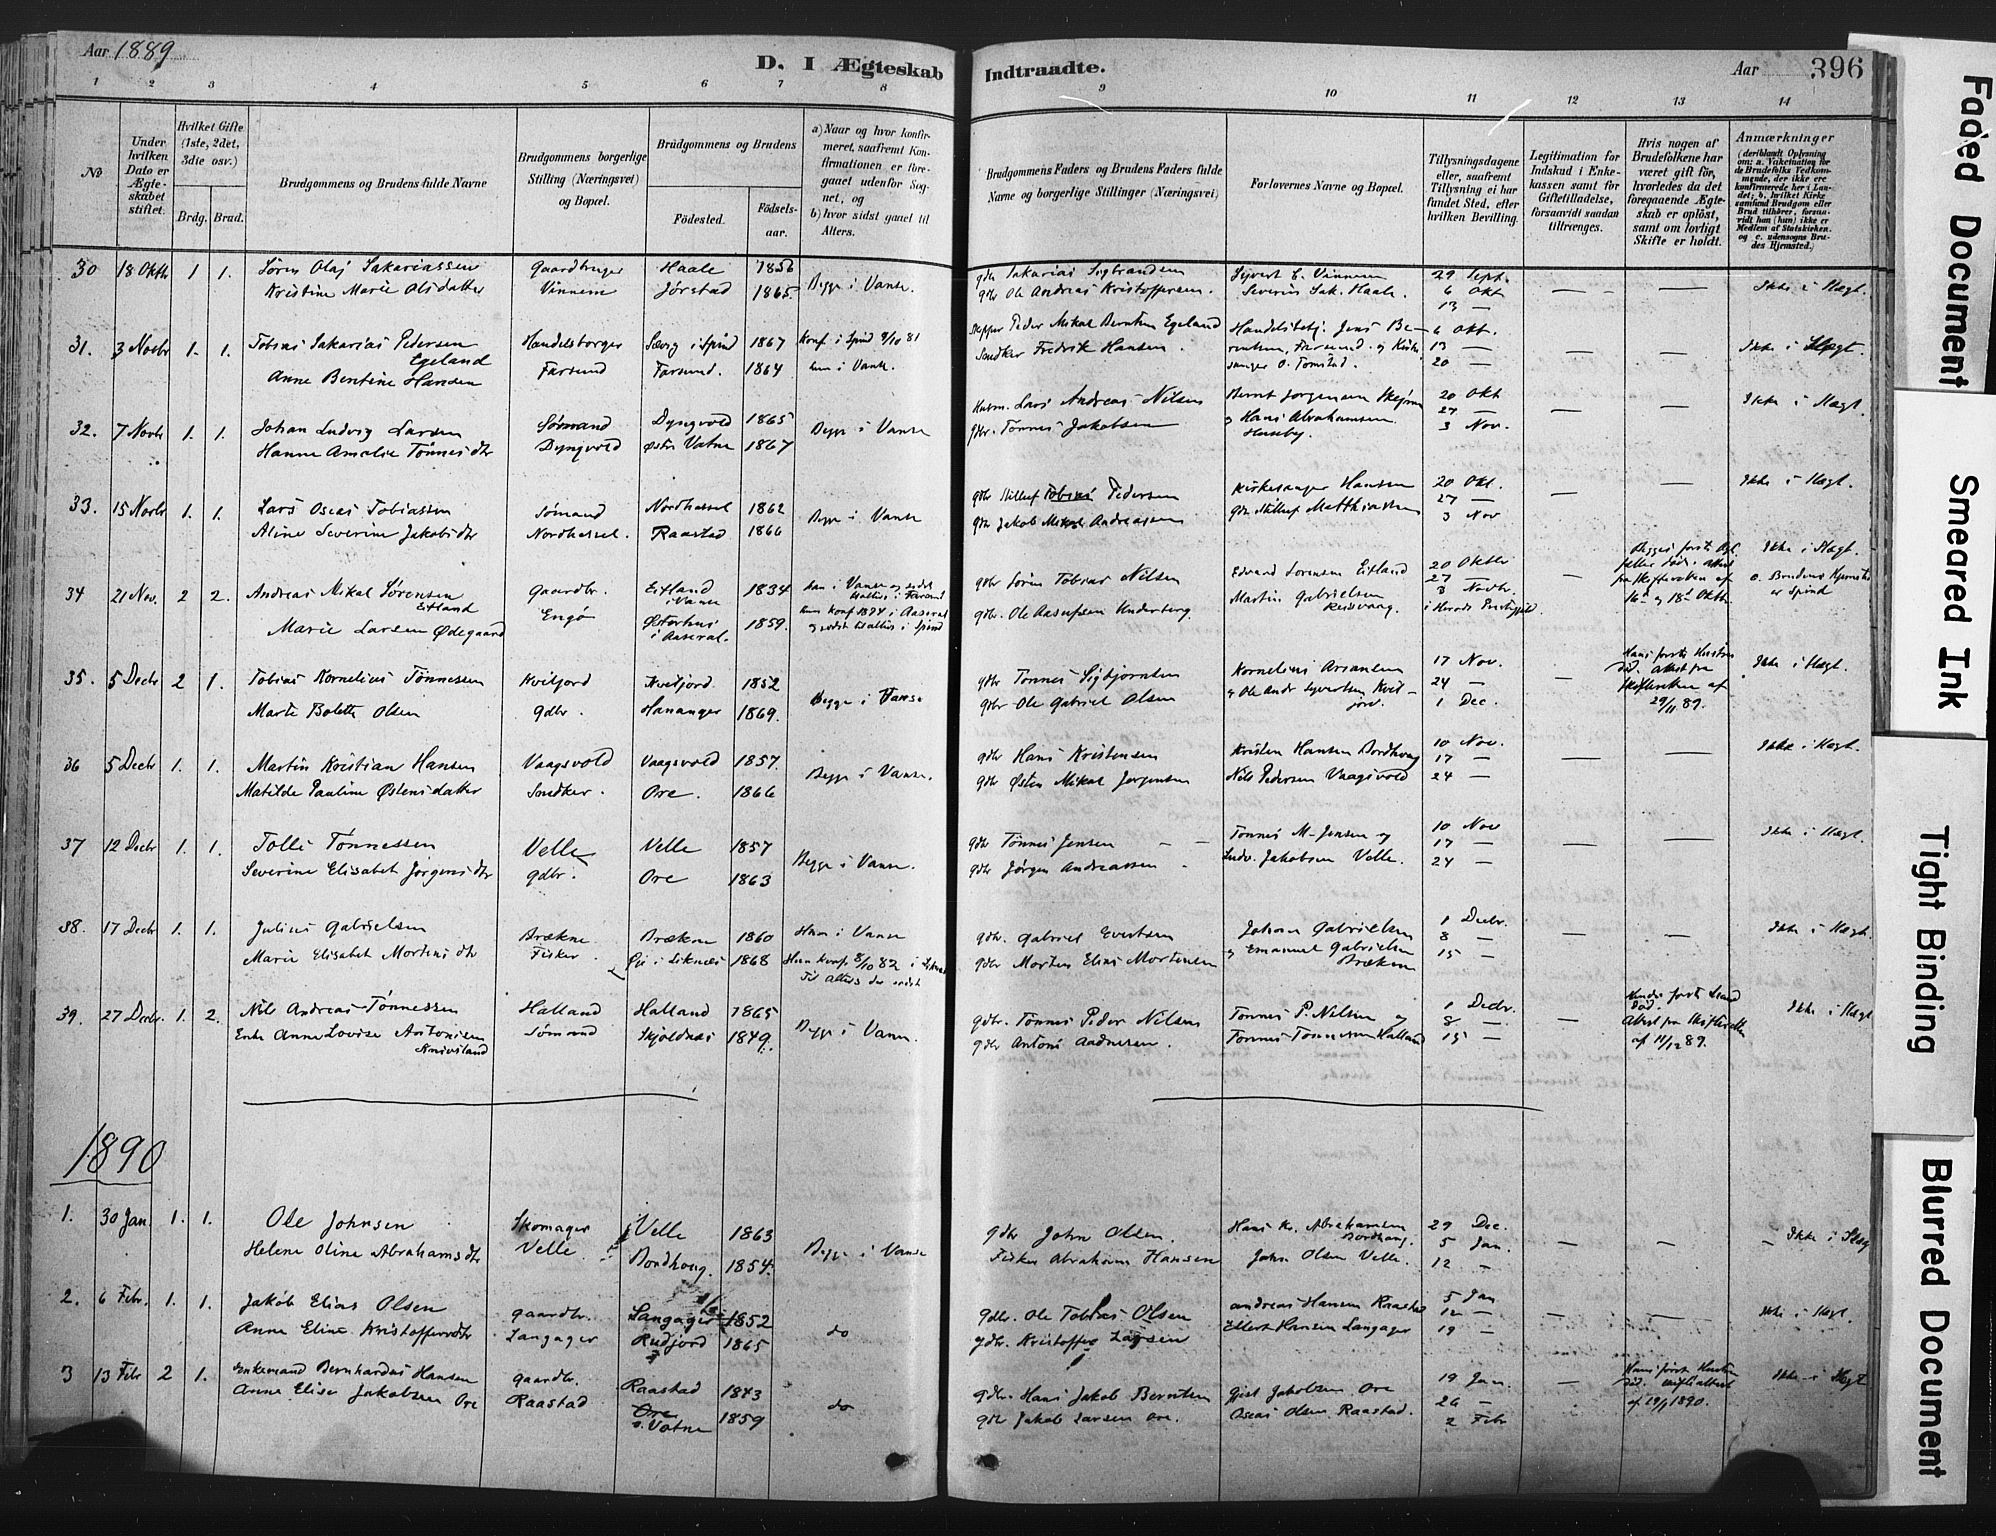 Aar 1889
D. I Ægteskab Indtraadte.
Aar 396
1 2 3 4 5 6 7 8 9 10 11 12 13 14
No
Under hvilken Dato er Ægteskabet stiftet.
Hvilket Gifte (1ste, 2det, 3die osv.)
Brdg. Brud.
Brudgommens og Brudens fulde Navne
Brudgommens borgerlige Stilling (Næringsvei) og Bopæl.
Brudgommens og Brudens
Fødested. Fødselsaar.
a) Naar og hvor konfirmeret, saafremt Konfirmationen er foregaaet udenfor Sognet, og
b) hvor sidst gaaet til Alters.
Brudgommens Faders og Brudens Faders fulde Navne og borgerlige Stillinger (Næringsvei)
Forlovernes Navne og Bopæl.
Tillysningsdagene eller, saafremt Tillysning ei har fundet Sted, efter hvilken Bevilling.
Legitimation for Indskud i Enkekassen samt for Giftetilladelse, forsaavidt saadan tiltrænges.
Hvis nogen af Brudefolkene har været gift før, hvorledes da det foregaaende Ægteskab er opløst, samt om lovligt Skifte er holdt.
Anmærkninger
(deriblandt Oplysning om: a. Vakcination for de Brudefolks Vedkommende, der ikke ere konfirmerede her i Landet; b. hvilket Kirkesamfund Brudgom eller Brud tilhører, forsaavidt han (hun) ikke er Medlem af Statskirken, og c. udensogns Brudes Hjemsted.)
30 18 Oktb 1 1. Søren Olaj Sakariassen Gaardbruger Haale 1856 Begge i Vanse. gdbr Sakarias Sigbrandsen Sijvert E. Vinnem 29 Sept. — — Ikke i Slægt.
Kristine Marie Olsdatter Vinnem Jørstad 1865. gdbr Ole Andreas Kristoffersen. Severin Sak. Haale. 6 Okt
13 —
31. 3 Novbr 1. 1. Tobias Sakarias Pedersen Egeland Handelsborger i Spind 1867 Konf. i Spind 9/10 81 Skipper Peder Mikal Berntsen Egeland Handelsbetj. Jens Be- 6 Okt. — — Ikke i Slægt.
Anne Bentine Hansen Farsund Farsund. 1864 hun i Vanse. Snedker Fredrik Hansen. rentsen, Farsund. og Kirke- 13 —
sanger O. Tomstad. 20 —
32. 7 Novbr 1. 1. Johan Ludvig Larsen Sømand Dyngvold 1865 Begge i Vanse Husm. Lars Andreas Nilsen Bernt Jørgensen 20 Okt — — Ikke i Slægt.
Hanne Amalie Tønnesdtr Dyngvold Østre Vatne 1867 gdbr. Tønnes Jakobsen og Hans Abrahamsen 27 —
Huseby. 3 Nov.
33. 15 Novbr 1. 1. Lars Oscar Tobiassen Sømand Nordhassel 1862 Begge i Vanse gdbr Tobias Pedersen Kirkesanger Hansen 20 Okt. — — Ikke i Slægt.
Aline Severine Jakobsdtr Nordhassel. Raastad 1866 gdbr Jakob Mikal Andreassen 27 —
3 Nov
34 21 Nov. 2 2. Andreas Mikal Sørensen Eitland Gaardbr. Eitland i Vanse 1834 gdbr Søren Tobias Nilsen Edvard Sørensen Eitland 20 Oktbr — Ikke i Slægt.
Marie Larsen Ødegaard Engø i Aaseral. 1859. hun konf. 1874 i Aaseral og sidst til alters i Spind gdbr. Ole Aasufsen Martin Gabrielsen 27 — 16de og 18de Oktbr. c. Brudens Hjemsted er Spind
3 Novbr.
35. 5 Decbr 2 1. Tobias Kornelius Tønnessen Kviljord Kviljord. 1852 Begge i Vanse gdbr Tønnes Sigbjørnsen Kornelius 17 Nov. — Hans første Hustru død. Attest fra Skifteretten af 29/11 89. Ikke i Slægt.
Marte Bolette Olsen Gdbr. Hananger 1869. gdbr Ole Gabriel Olsen og Ole Andr Syvertsen Kviljord. 24 —
1 Dec.
36 5 Decbr 1. 1. Martin Kristian Hansen Vaagsvold Vaagsvold 1857. Begge i Vanse. gdbr Hans Kristensen Kristen Hansen Bordhoug 10 Nov. — — Ikke i Slægt.
Matilde Pauline Østensdatter Snedker. Ore. 1866 gdbr Østen Mikal Jørgensen Nils Pedersen Vaagsvold 17 —
24 —
37 12 Decbr 1. 1. Tolli Tønnessen Velle Velle 1857 Begge i Vanse. gdbr Tønnes Jensen Tønnes M. Jensen og 10 Nov — Ikke i Slægt.
Severine Elisabet Jørgensdtr gdbr. Ore 1863 gdbr Jørgen Andreassen Ludv. Jakobsen Velle. 17 —
24 —
38. 17 Decbr 1. 1. Julius Gabrielsen Brækne Brækne 1860 Han i Vanse gdbr. Gabriel Evertsen Johan Gabrielsen 1 Decbr. — — Ikke i Slægt.
Marie Elisabet Mortensdtr Fisker 1868 Hun konf. 8/10 82 i gdbr Morten Elias Mortensen og Emanuel Gabrielsen Brækne 8 —
Til Alters der sidst 15 —
39. 27 Decbr. 1. 2. Nils Andreas Tønnessen Halland Halland 1865 Begge i Vanse. gdbr. Tønnes Peder Nilsen Tønnes P. Nilsen og 1 Decbr. — Hendes første Mand død. Attest fra Skifteretten af 11/12 89. Ikke i Slægt
Enke Anne Lovise Antonisen Sømand Skjoldnæs 1849. gdbr Antoni Aadnesen. Tønnes Tønnesen Halland 8 —
15 —
1890
1. 30 Jan. 1. 1. Ole Johnsen Skomager Velle 1863 Begge i Vanse gdbr John Olsen. Hans Kr. Abrahamsen Bordhaug. 29 Dec. — — Ikke i Slægt
Helene Oline Abrahamsdtr Velle Bordhoug. 1854. Fisker Abraham Hansen John Olsen Velle. 5 Jan.
12 —
2. 6 Febr. 1. 1. Jakob Elias Olsen gaardbr. Langager 1852 do gdbr. Ole Tobias Olsen Andreas Hansen Raastad 5 Jan — — Ikke i Slægt.
Anne Eline Kristoffersdtr Langager Rudjord 1865 gdbr. Kristoffer Larsen Ellert Hansen Langager 12 —
19 —
3 13 Febr 2 1. Enkemand Bernhardus Hansen gaardbr. Raastad 1843 do gdbr. Hans Jakob Berntsen Jakobsen Ore 19 Jan. — Hans første Hustru død. Skifteattest af 19/1 1890. Ikke i Slægt
Anne Elise Jakobsen Ore Raastad Ore ø. Vatne 1859 gdbr Jakob Larsen Ore. Oscar Olsen Raastad. 26 —
2 Febr
Faded Document
Smeared Ink
Tight Binding
Blurred Document